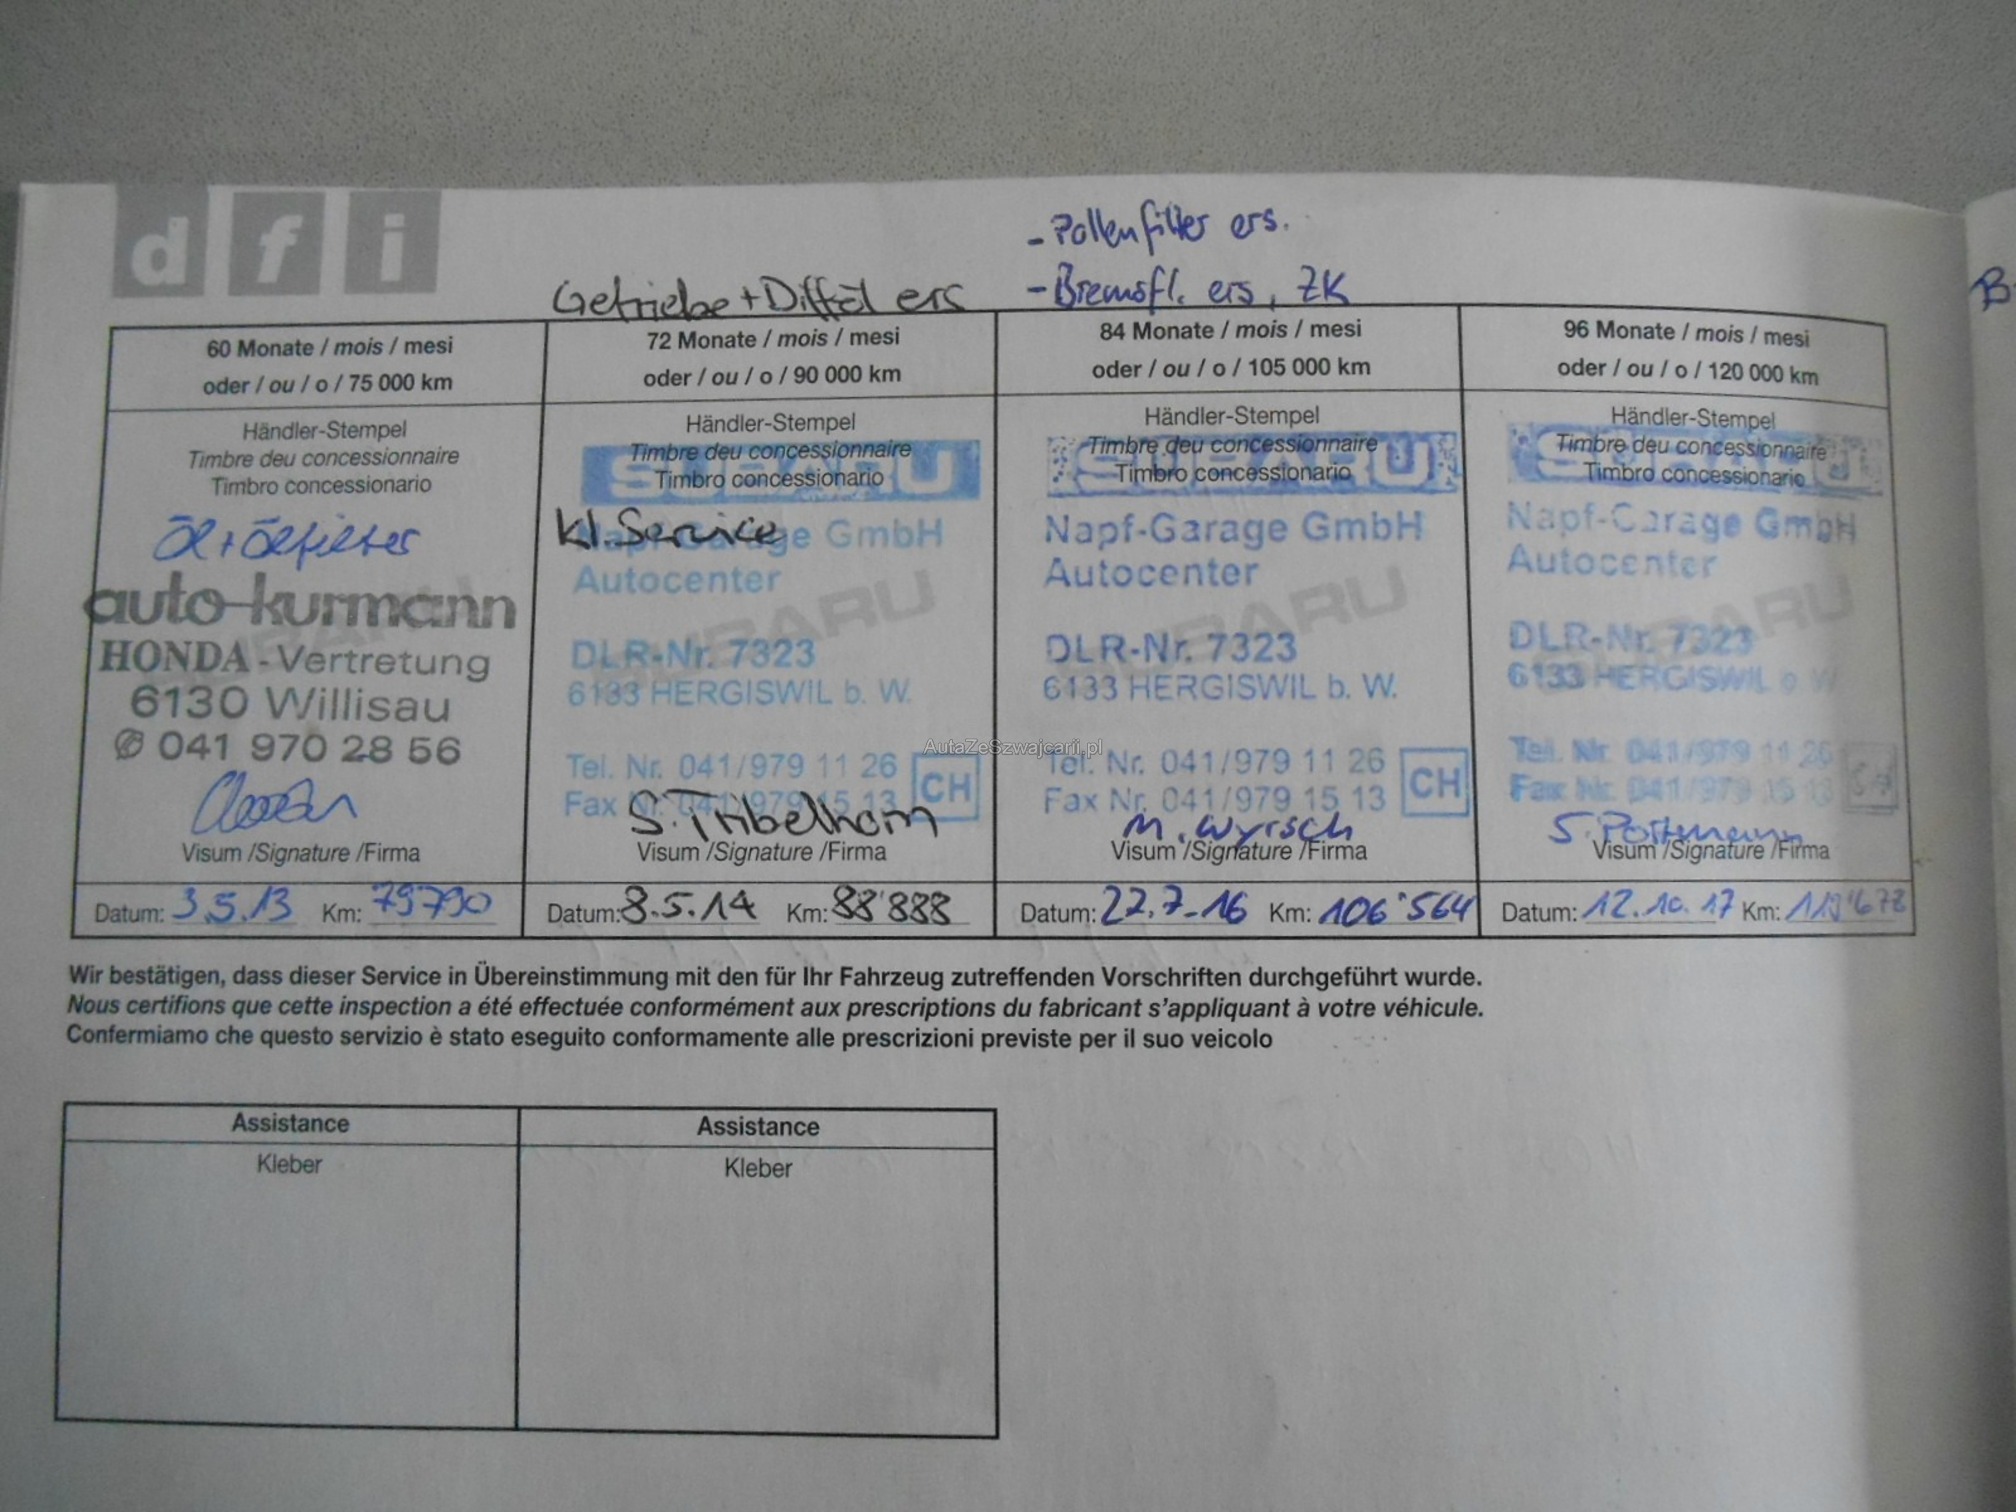 d f i
- Pollenfilter ers.
Getriebe + Diffel ers
- Bremsfl. ers, ZK
60 Monate / mois / mesi
oder / ou / o / 75 000 km
Händler-Stempel
Timbre deu concessionnaire
Timbro concessionario
Öl + Ölfilter
auto-kurmann
HONDA - Vertretung
6130 Willisau
✆ 041 970 28 56
Visum /Signature /Firma
Datum: 3.5.13 Km: 79790
72 Monate / mois / mesi
oder / ou / o / 90 000 km
Händler-Stempel
Timbre deu concessionnaire
Timbro concessionario
SUBARU
Kl. Service
Napf-Garage GmbH
Autocenter
SUBARU
DLR-Nr. 7323
6133 HERGISWIL b. W.
Tel. Nr. 041/979 11 26
CH
Fax Nr. 041/979 15 13
S. Tribelhorn
Visum /Signature /Firma
Datum: 8.5.14 Km: 88'888
84 Monate / mois / mesi
oder / ou / o / 105 000 km
Händler-Stempel
Timbre deu concessionnaire
Timbro concessionario
SUBARU
Napf-Garage GmbH
Autocenter
SUBARU
DLR-Nr. 7323
6133 HERGISWIL b. W.
Tel. Nr. 041/979 11 26
CH
Fax Nr. 041/979 15 13
M. Wyrsch
Visum /Signature /Firma
Datum: 22.7.16 Km: 106'564
96 Monate / mois / mesi
oder / ou / o / 120 000 km
Händler-Stempel
Timbre deu concessionnaire
Timbro concessionario
SUBARU
Napf-Garage GmbH
Autocenter
SUBARU
DLR-Nr. 7323
6133 HERGISWIL b W
Tel. Nr. 041/979 11 26
CH
Fax Nr. 041/979 15 13
Visum /Signature /Firma
Datum: 12.10.17 Km:
AutaZeSzwajcarii.pl
Wir bestätigen, dass dieser Service in Übereinstimmung mit den für Ihr Fahrzeug zutreffenden Vorschriften durchgeführt wurde.
Nous certifions que cette inspection a été effectuée conformément aux prescriptions du fabricant s'appliquant à votre véhicule.
Confermiamo che questo servizio è stato eseguito conformamente alle prescrizioni previste per il suo veicolo
Assistance
Kleber
Assistance
Kleber